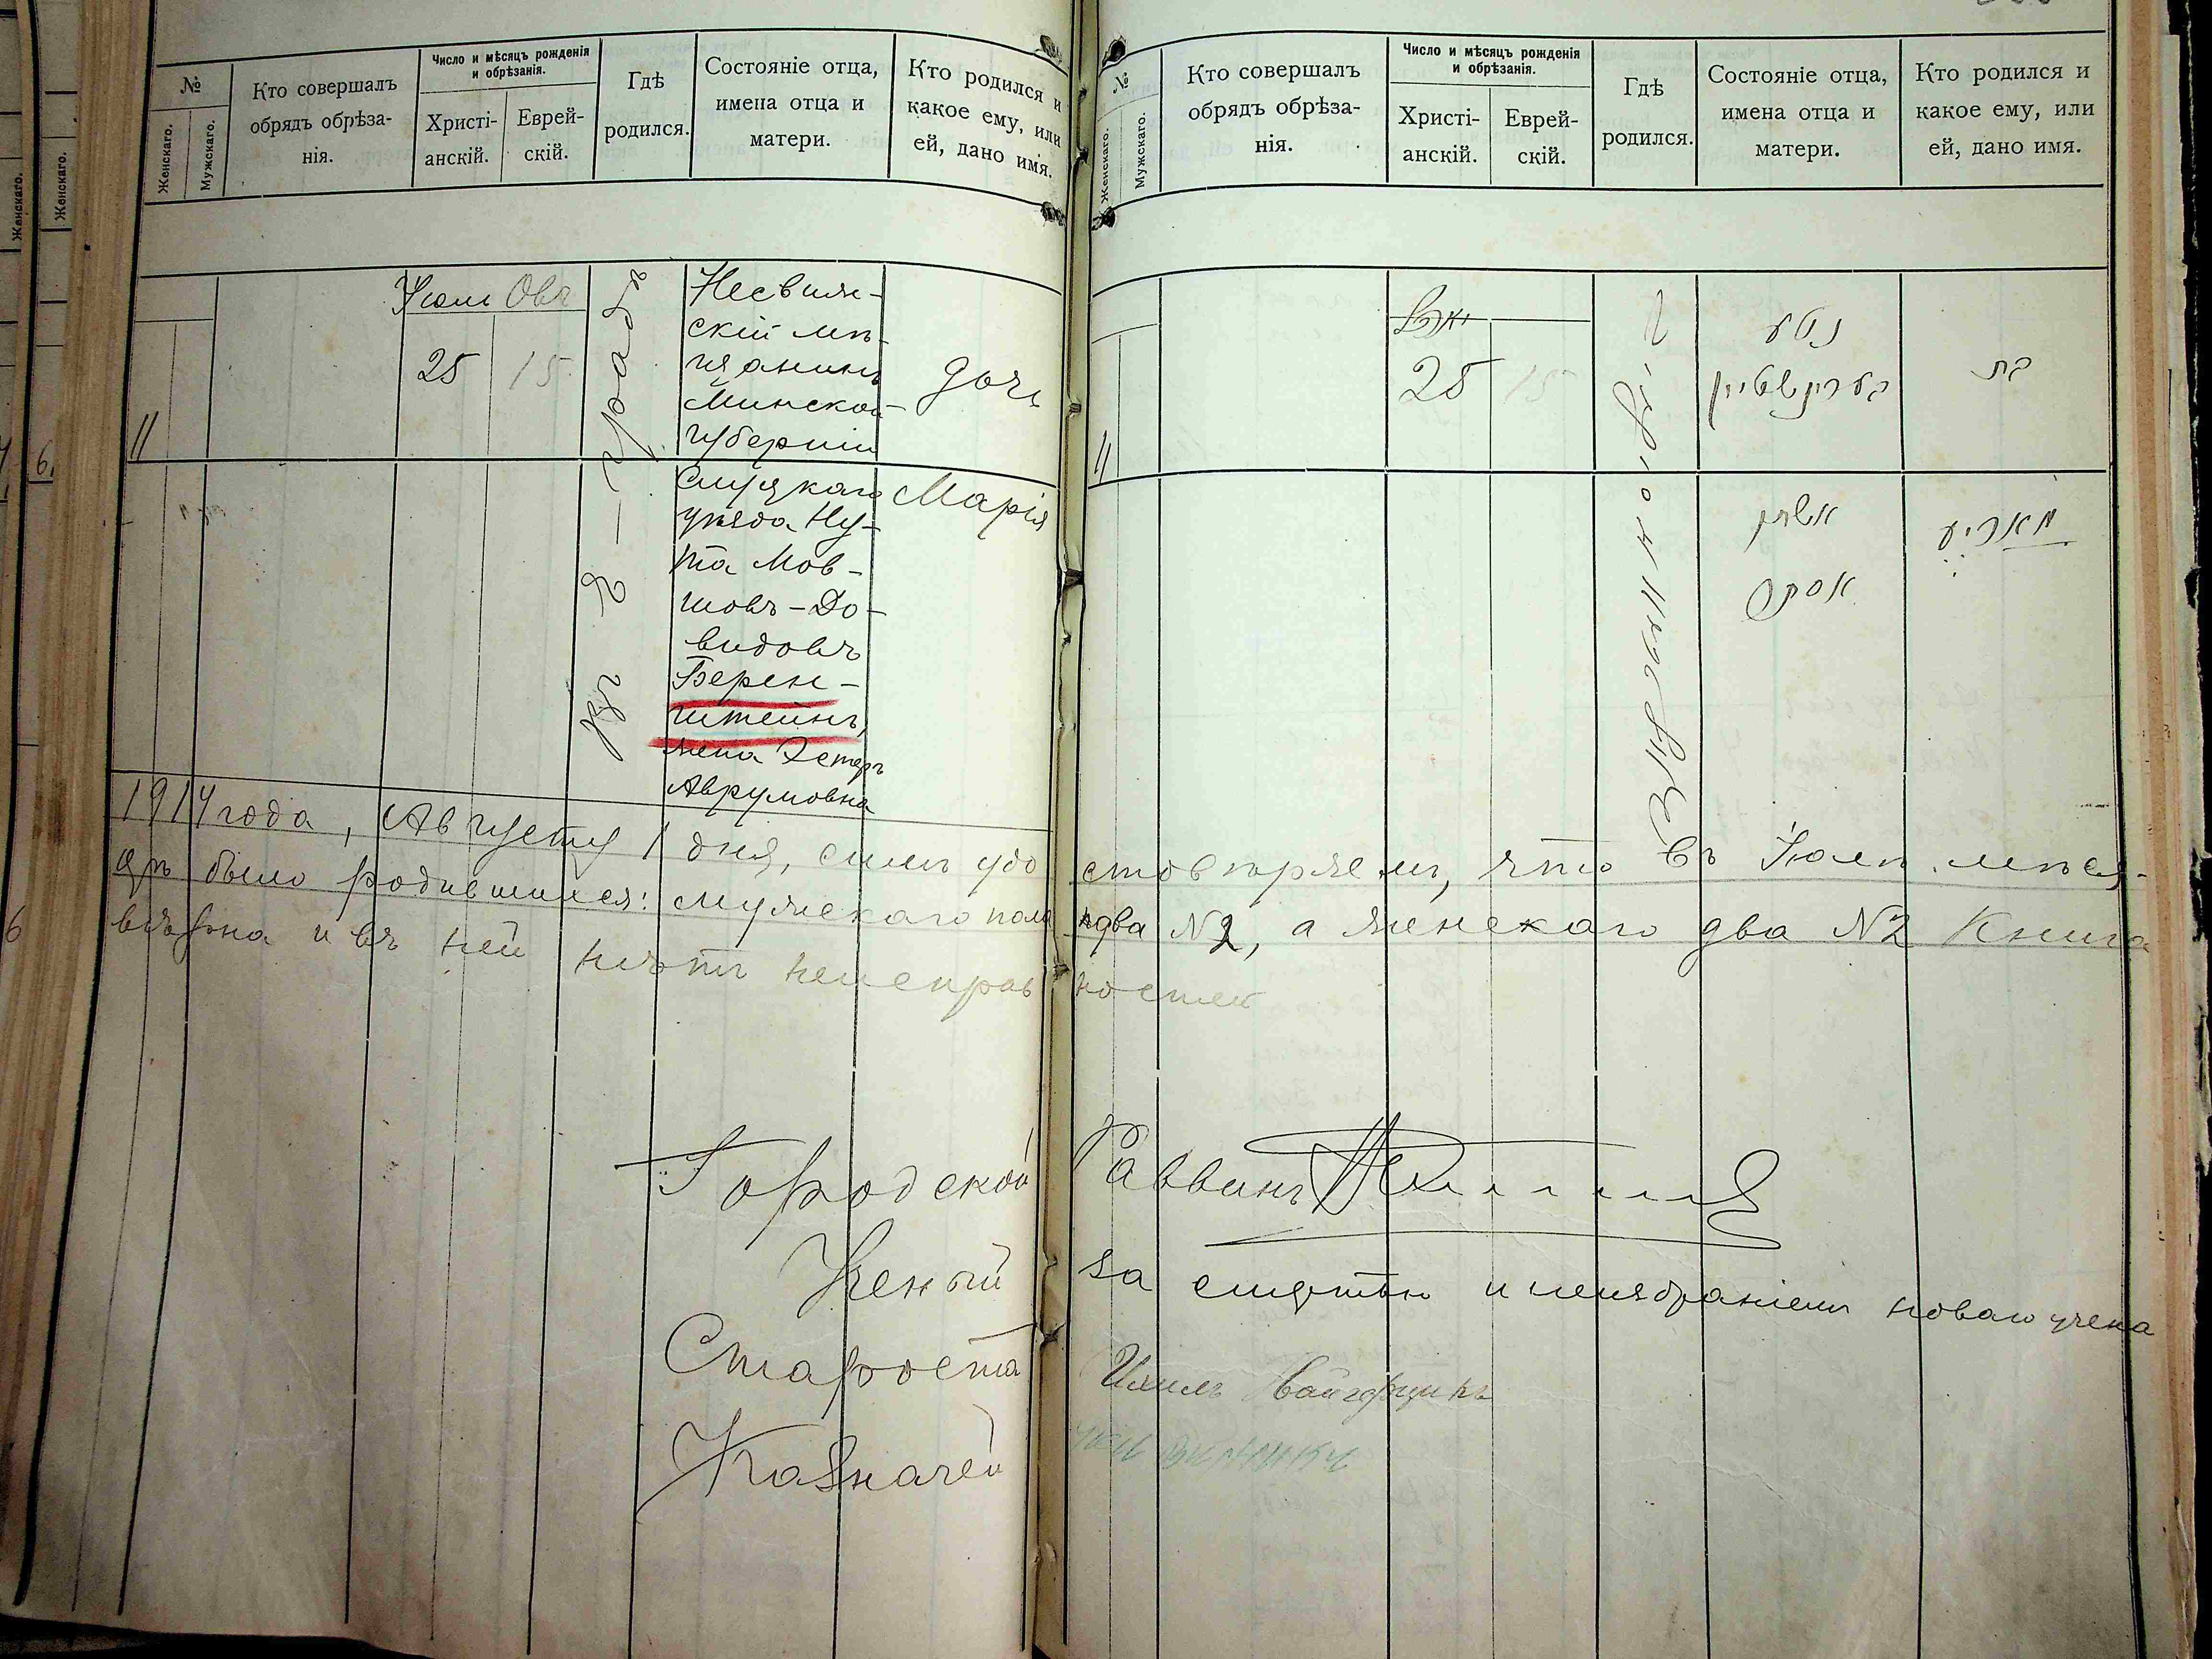 №
Женскаго.
Мужскаго.
Кто совершалъ
обрядъ обрѣза-
нія.
Число и мѣсяцъ рожденія
и обрѣзанія.
Христі-
анскій.
Еврей-
скій.
Гдѣ
родился.
Состояніе отца,
имена отца и
матери.
Кто родился и
какое ему, или
ей, дано имя.
11
Іюли Овъ
25 15
Несвиж-
скій мѣ-
щанинъ
Минской
губерніи
Слуцкаго
уѣзда Ну-
та Мов-
шовъ-До-
видовъ
Берен-
штейнъ,
жена Эстеръ
Аврумовна
дочь
Марія
№
Женскаго.
Мужскаго.
Кто совершалъ
обрядъ обрѣза-
нія.
Число и мѣсяцъ рожденія
и обрѣзанія.
Христі-
анскій.
Еврей-
скій.
Гдѣ
родился.
Состояніе отца,
имена отца и
матери.
Кто родился и
какое ему, или
ей, дано имя.
11
25 15
נטע
בערינשטיין
אשתו
אסתר
בת
מאריע
1914 года, Августу 1 дня, симъ удостовѣряемъ, что въ Іюлѣ мѣся-
цѣ было родившихся: мужскаго пола два №2, а женскаго два №2 Книга
вѣрна и въ ней нѣтъ неисправностей
Городской Раввинъ
Ученый за смертью и неизбраніемъ новаго учена
Староста Ихилъ
Казначей